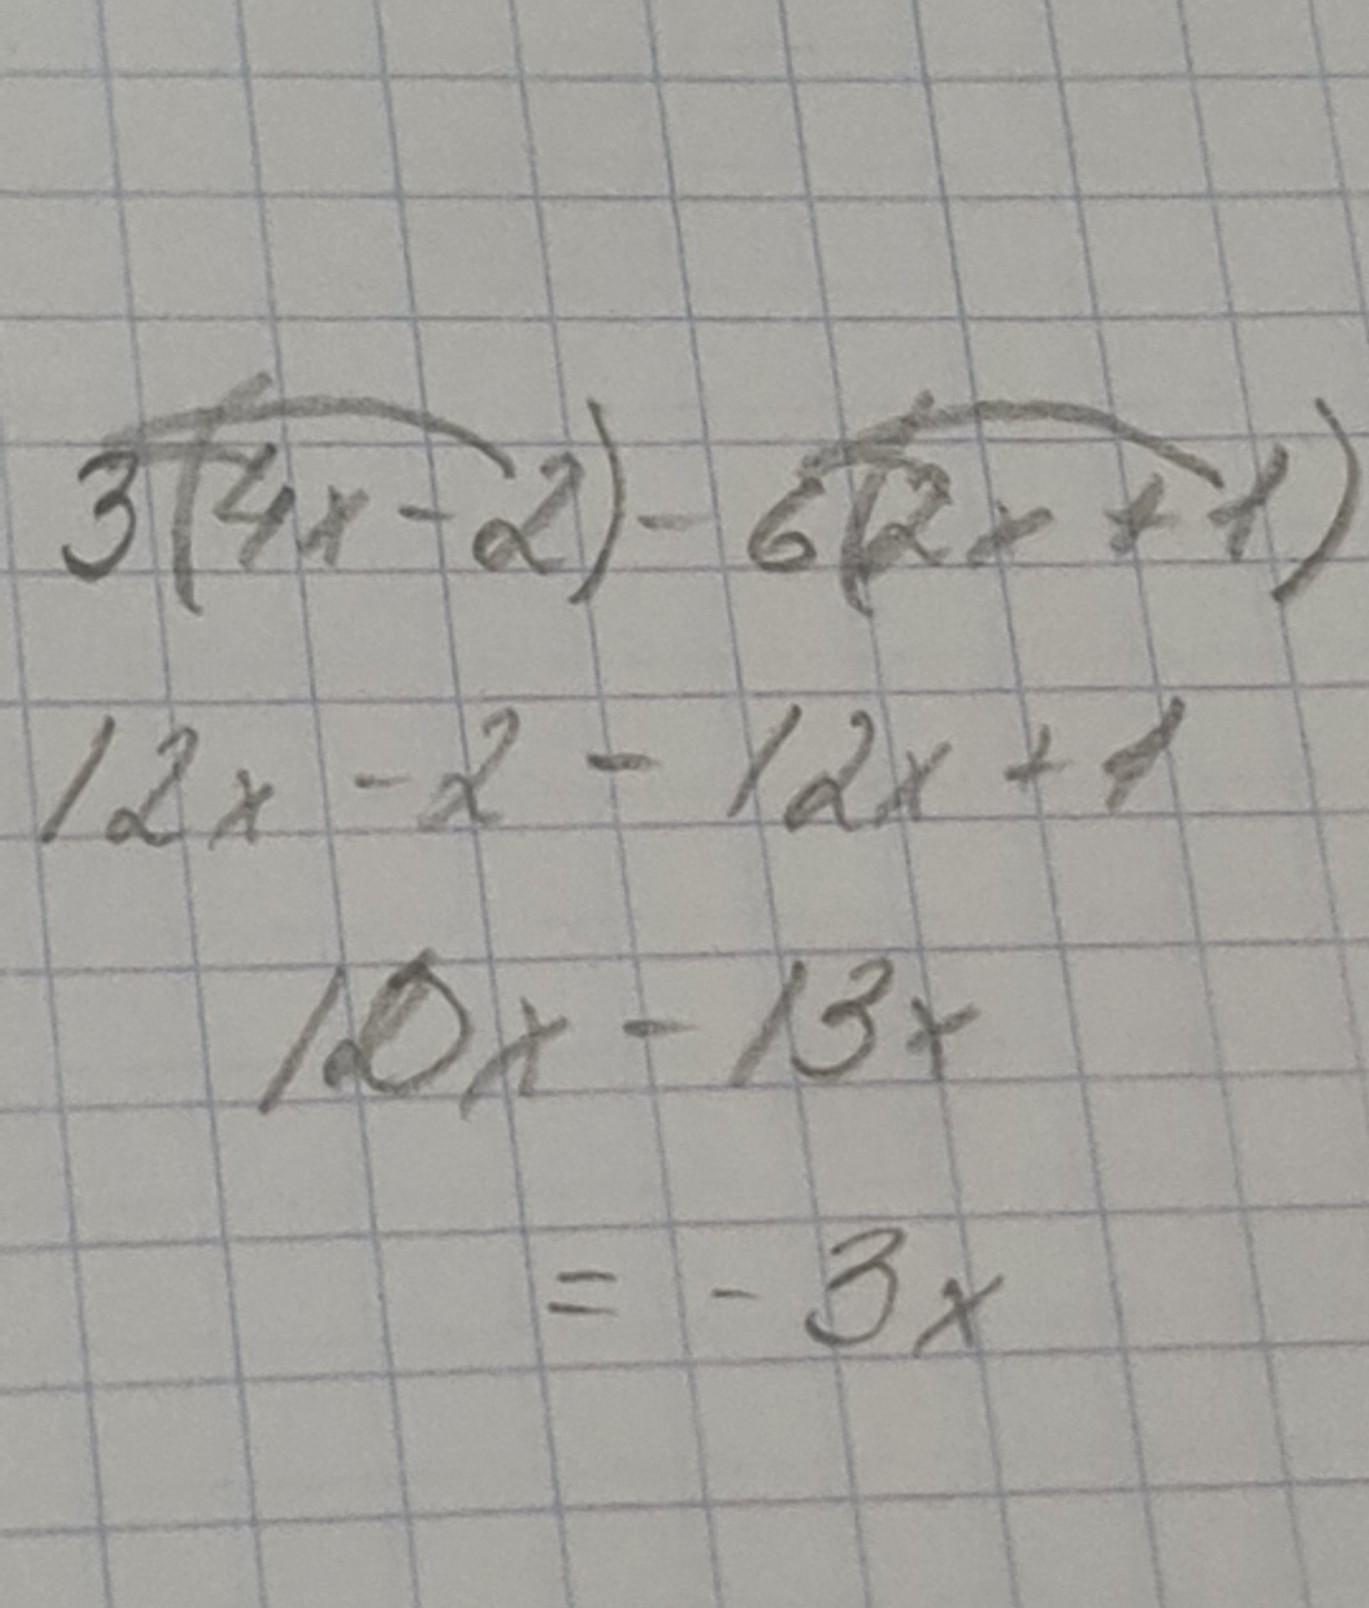 3(4x - 2) - 6(2x + 1)
12x - 2 - 12x + 1
10x - 13x
= - 3x